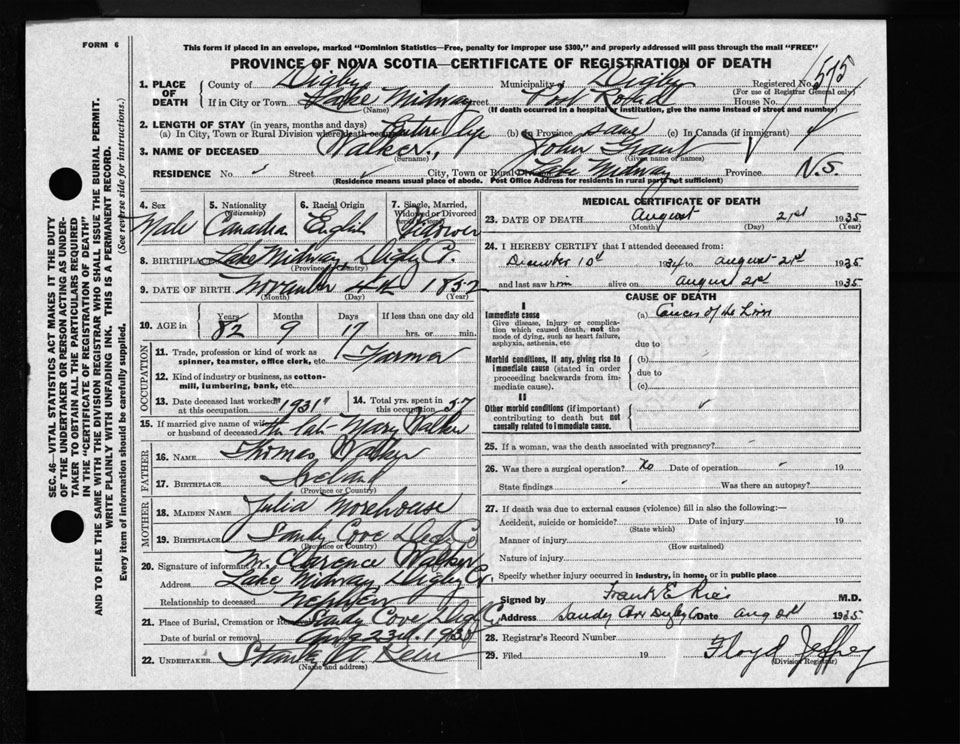 FORM 6
This form if placed in an envelope, marked "Dominion Statistics—Free, penalty for improper use $300," and properly addressed will pass through the mail "FREE"
PROVINCE OF NOVA SCOTIA—CERTIFICATE OF REGISTRATION OF DEATH
1. PLACE OF DEATH County of Digby Municipality of Digby Registered No. 575
(For use of Registrar General only)
If in City or Town Lake Midway Street House No.
(Name) (If death occurred in a hospital or institution, give the name instead of street and number)
2. LENGTH OF STAY (in years, months and days)
(a) In City, Town or Rural Division where death occurred Entire life (b) In Province same (c) In Canada (if immigrant)
3. NAME OF DECEASED Walker, John Grant
(Surname) (Given name or names)
RESIDENCE No. Street City, Town or Rural Division Lake Midway Province N.S.
(Residence means usual place of abode. Post Office Address for residents in rural parts not sufficient)
4. Sex Male
5. Nationality (Citizenship) Canadian
6. Racial Origin English
7. Single, Married, Widowed or Divorced Widower
8. BIRTHPLACE Lake Midway Digby Co.
(Province or Country)
9. DATE OF BIRTH November 4th 1852
(Month) (Day) (Year)
10. AGE in Years 82 Months 9 Days 17 If less than one day old
hrs. or min.
OCCUPATION
11. Trade, profession or kind of work as spinner, teamster, office clerk, etc. Farmer
12. Kind of industry or business, as cotton-mill, lumbering, bank, etc.
13. Date deceased last worked at this occupation 1931
14. Total yrs. spent in this occupation 57
15. If married give name of wife or husband of deceased The late Mary Walker
FATHER
16. NAME Thomas Walker
17. BIRTHPLACE Ireland
(Province or Country)
MOTHER
18. MAIDEN NAME Julia Morehouse
19. BIRTHPLACE Sandy Cove Digby Co
(Province or Country)
20. Signature of informant Mr. Clarence Walker
Address Lake Midway Digby Co.
Relationship to deceased Nephew
21. Place of Burial, Cremation or Removal Sandy Cove Digby Co
Date of burial or removal Aug 23rd 1935
22. UNDERTAKER
(Name and address)
MEDICAL CERTIFICATE OF DEATH
23. DATE OF DEATH August 21st 1935
(Month) (Day) (Year)
24. I HEREBY CERTIFY that I attended deceased from:
December 10th 1934 to August 21st 1935
and last saw him alive on August 21st 1935
CAUSE OF DEATH
I
Immediate cause (a) Cancer of the
Give disease, injury or complication which caused death, not the mode of dying, such as heart failure, asphyxia, asthenia, etc.
due to
Morbid conditions, if any, giving rise to immediate cause (stated in order proceeding backwards from immediate cause). (b)
due to
(c)
II
Other morbid conditions (if important) contributing to death but not causally related to immediate cause.
25. If a woman, was the death associated with pregnancy?
26. Was there a surgical operation? No Date of operation 19
State findings Was there an autopsy?
27. If death was due to external causes (violence) fill in also the following:—
Accident, suicide or homicide? Date of injury 19
(State which)
Manner of injury
(How sustained)
Nature of injury
Specify whether injury occurred in industry, in home, or in public place
Signed by Frank E Rice M.D.
Address Sandy Cove Digby Co Date Aug 1935
28. Registrar's Record Number
29. Filed 19 Floyd Jeffrey
(Division Registrar)
SEC. 46—VITAL STATISTICS ACT MAKES IT THE DUTY
OF THE UNDERTAKER OR PERSON ACTING AS UNDER-
TAKER TO OBTAIN ALL THE PARTICULARS REQUIRED
IN THE "CERTIFICATE OF REGISTRATION OF DEATH"
AND TO FILE THE SAME WITH THE DIVISION REGISTRAR WHO SHALL ISSUE THE BURIAL PERMIT.
WRITE PLAINLY WITH UNFADING INK. THIS IS A PERMANENT RECORD.
Every item of information should be carefully supplied. (See reverse side for instructions.)